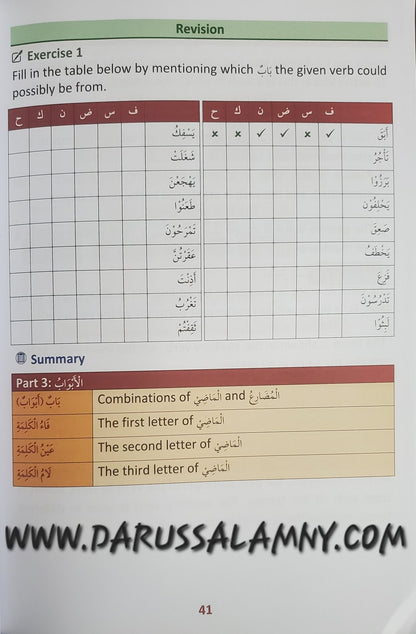 Revision
Exercise 1
Fill in the table below by mentioning which بَابٌ the given verb could
possibly be from.
ف س ض ن ك ح
أَبَقَ ✓ x ✓ ✓ x x
تَأْجُرُ
بَرَزُوْا
يَحْلِفُوْنَ
صَعِقَ
يَخْطَفُ
فَزِعَ
تَدْرُسُوْنَ
لَبِثُوْا
ف س ض ن ك ح
يَسْفِكُ
شَغَلَتْ
يَهْجَعْنَ
طَعَنُوْا
تَمْرَحُوْنَ
عَقَرْتُنَّ
أَذِنْتَ
تَغْرُبُ
ثَقِفْتُمْ
Summary
Part 3: اَلْأَبْوَابُ
بَابٌ (أَبْوَابٌ) Combinations of اَلْمَاضِيْ and اَلْمُضَارِعُ
فَاءُ الْكَلِمَةِ The first letter of اَلْمَاضِيْ
عَيْنُ الْكَلِمَةِ The second letter of اَلْمَاضِيْ
لَامُ الْكَلِمَةِ The third letter of اَلْمَاضِيْ
WWW.DARUSSALAMNY.COM
41